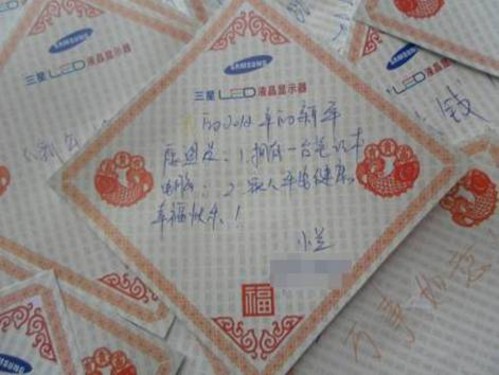 SAMSUNG
三星 LED 液晶显示器
年的新年
愿望是：1.拥有一台笔记本
电脑；2.家人平安健康，
幸福快乐！
小兰
福
SAMSUNG
三星 LED 液晶显示器
SAMSUNG
显示器
钱
万事如意
SAMSUNG